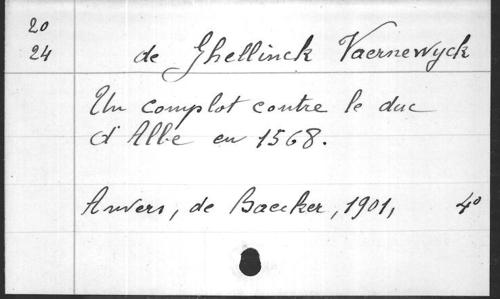 20
24 de Ghellinck Vaernewyck
Un complot contre le duc
d'Albe en 1568.
Anvers, de Backer, 1901, 4º